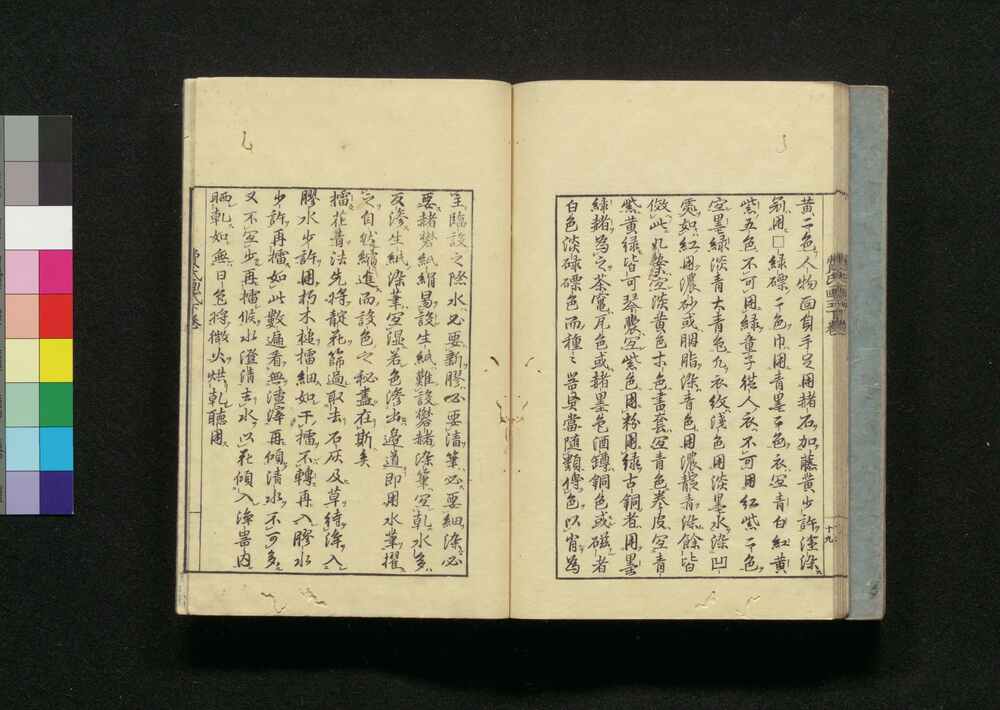 黄二色人物面自手足用赭石加藤黄少許淦染
朔用□緑磦二色巾用青墨二色衣宜青白紅黄
紫五色不可用緑童子從人衣不可用紅紫二色
宜墨緑淡青大青色凢衣紋浅色用淡墨水染凹
處如紅用濃砂或胭脂染青色用濃靛青染餘皆
倣此几榻宜淡黄色木色書套宜青色巻皮宜青
紫黄緑皆可琴囊宜紫色用粉用緑古銅者用墨
緑赭為之茶竃瓦色或赭墨色酒罇銅色或磁者
白色淡碌磦色而種之器具當随類傅色以肖為
至臨設之際水必要新膠必要清筆必要細染必
要赭礬紙絹易設生紙難設礬赭染筆宜乾水多
反滲生紙染筆宜湿若色滲出邉道即用水筆擢
之自然縮進而設色之秘盡在斯矣
擂花青法先将靛花篩過取去石灰及草純滌入
膠水少許用朽木槌擂細如干擂不轉再入膠水
少許再擂如此數遍看無渣滓再傾清水不可多
又不宜少再擂候水澄清去水以花傾入浄器内
晒乾如無日色将微火烘乾聴用
十九